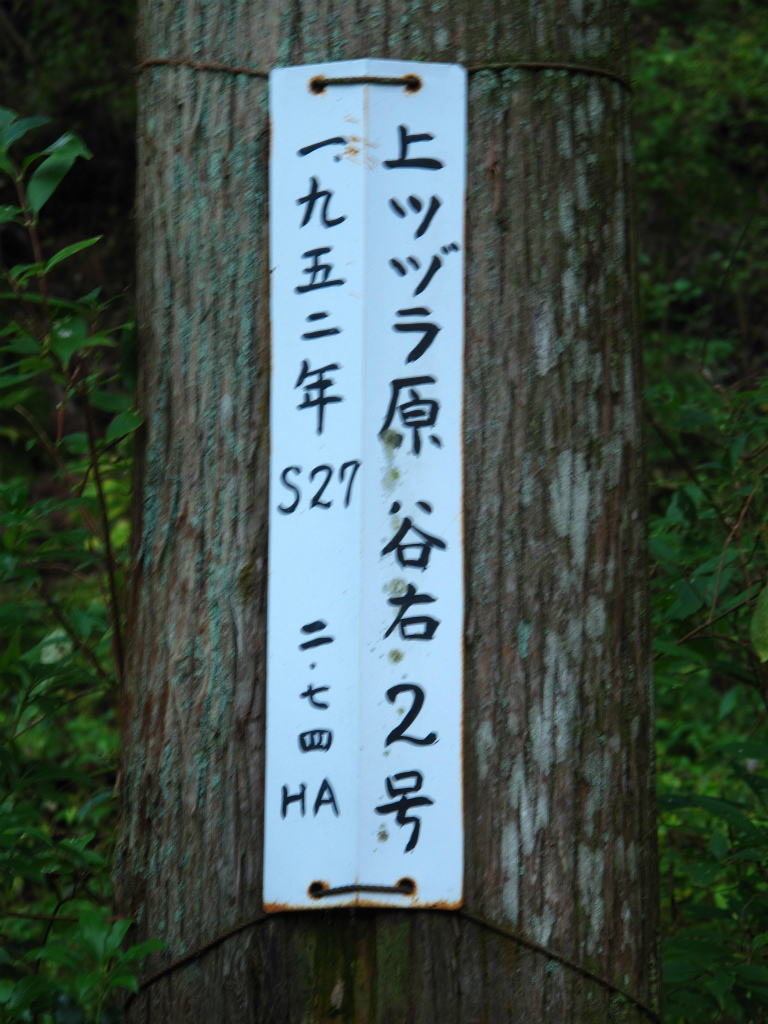 上ツヅラ原谷右2号
一九五二年 S27 二・七四HA